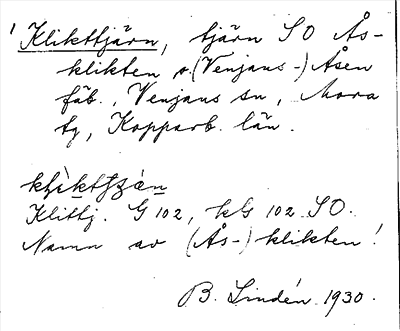 ¹ Klikttjärn, tjärn SO Ås-
klikten o. (Venjans-) Åsen
fäb., Venjans sn, Mora
tg, Kopparb. län.
Klittj. G 102, kG 102 SO.
Namn av (Ås-) klikten!
B. Lindén 1930.